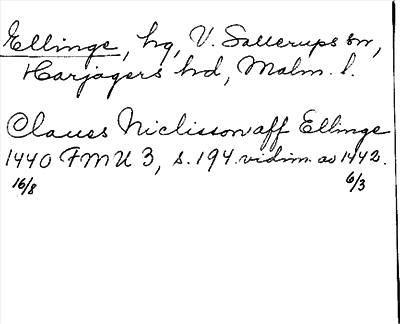 Ellinge, hg, V. Sallerups sn,
Harjagers hd, Malm. l.
Claues Niclisson aff Ellinge
1440 FMU 3, s. 194. vidim. av 1442.
16/8 6/3